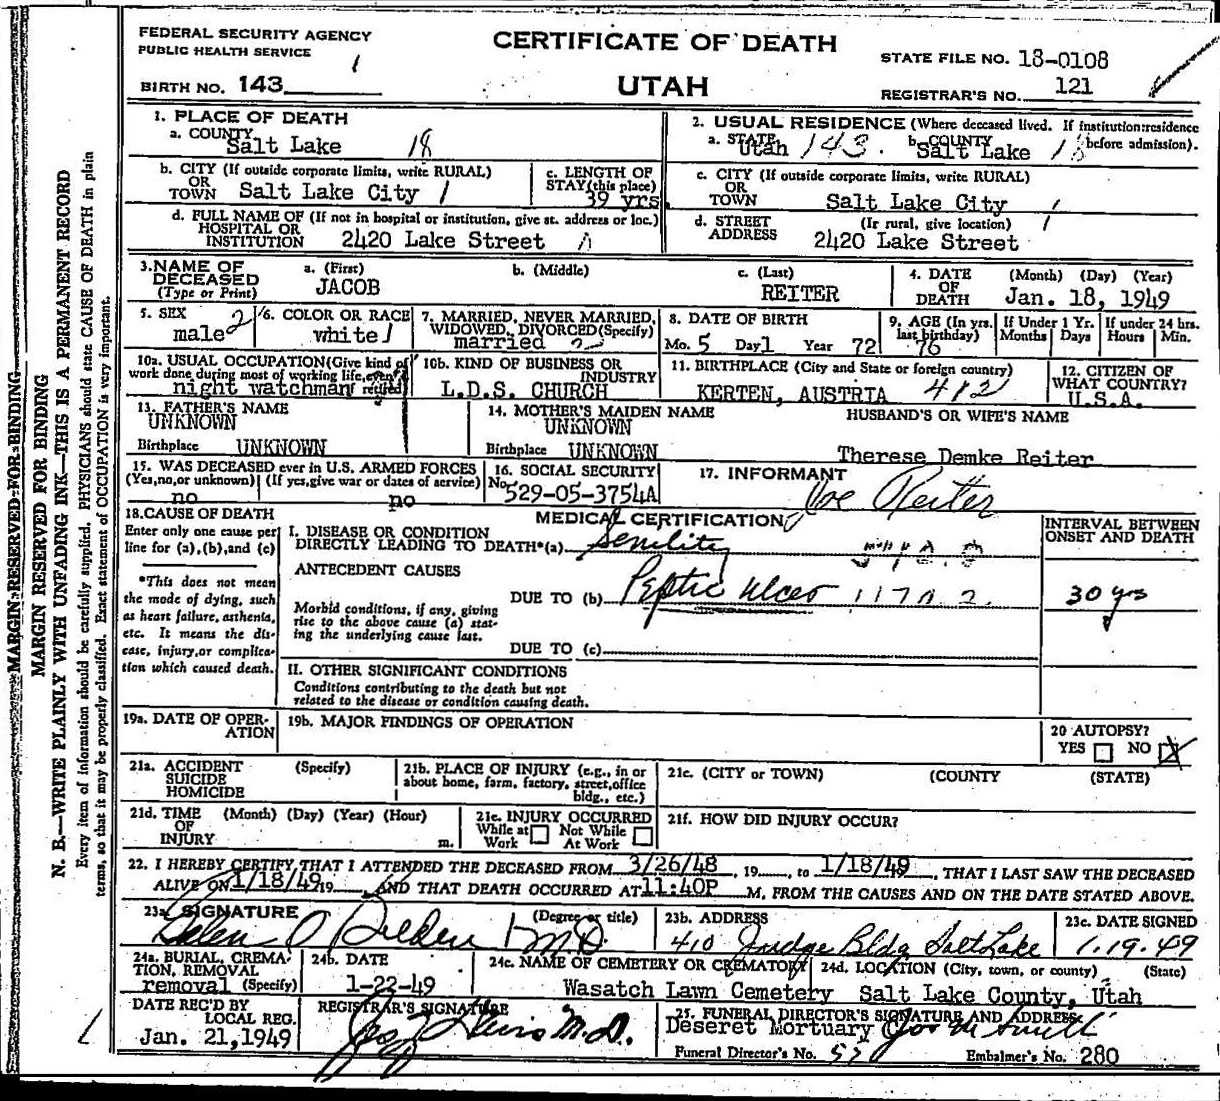 MARGIN RESERVED FOR BINDING
MARGIN RESERVED FOR BINDING
N. B.—WRITE PLAINLY WITH UNFADING INK—THIS IS A PERMANENT RECORD
Every item of information should be carefully supplied. PHYSICIANS should state CAUSE OF DEATH in plain
terms, so that it may be properly classified. Exact statement of OCCUPATION is very important.
FEDERAL SECURITY AGENCY
PUBLIC HEALTH SERVICE
BIRTH NO. 143
CERTIFICATE OF DEATH
UTAH
STATE FILE NO. 18-0108
REGISTRAR'S NO. 121
1. PLACE OF DEATH
a. COUNTY
Salt Lake 18
b. CITY (If outside corporate limits, write RURAL)
OR
TOWN Salt Lake City 1
c. LENGTH OF
STAY (this place)
39 yrs
d. FULL NAME OF (If not in hospital or institution, give st. address or loc.)
HOSPITAL OR
INSTITUTION 2420 Lake Street
2. USUAL RESIDENCE (Where deceased lived. If institution:residence
before admission).
a. STATE
Utah 143
b. COUNTY
Salt Lake 18
c. CITY (If outside corporate limits, write RURAL)
OR
TOWN Salt Lake City 1
d. STREET (If rural, give location)
ADDRESS 2420 Lake Street
3. NAME OF
DECEASED
(Type or Print)
a. (First)
JACOB
b. (Middle)
c. (Last)
REITER
4. DATE (Month) (Day) (Year)
OF
DEATH Jan. 18, 1949
5. SEX
male 2
6. COLOR OR RACE
white 1
7. MARRIED, NEVER MARRIED,
WIDOWED, DIVORCED (Specify)
married 2
8. DATE OF BIRTH
Mo. 5 Day 1 Year 72
9. AGE (In yrs.
last birthday)
76
If Under 1 Yr.
Months Days
If under 24 hrs.
Hours Min.
10a. USUAL OCCUPATION (Give kind of
work done during most of working life, even
if retired)
night watchman
10b. KIND OF BUSINESS OR
INDUSTRY
L.D.S. CHURCH
11. BIRTHPLACE (City and State or foreign country)
KERTEN, AUSTRIA 412
12. CITIZEN OF
WHAT COUNTRY?
U.S.A.
13. FATHER'S NAME
UNKNOWN
Birthplace UNKNOWN
14. MOTHER'S MAIDEN NAME
UNKNOWN
Birthplace UNKNOWN
HUSBAND'S OR WIFE'S NAME
Therese Demke Reiter
15. WAS DECEASED ever in U.S. ARMED FORCES
(Yes, no, or unknown) (If yes, give war or dates of service)
no no
16. SOCIAL SECURITY
No. 529-05-3754A
17. INFORMANT
Joe Reiter
18. CAUSE OF DEATH
Enter only one cause per
line for (a), (b), and (c)
*This does not mean
the mode of dying, such
as heart failure, asthenia,
etc. It means the dis-
ease, injury, or complica-
tion which caused death.
MEDICAL CERTIFICATION
INTERVAL BETWEEN
ONSET AND DEATH
I. DISEASE OR CONDITION
DIRECTLY LEADING TO DEATH*(a) Senility
ANTECEDENT CAUSES
DUE TO (b) Peptic Ulcer
30 yrs
Morbid conditions, if any, giving
rise to the above cause (a) stat-
ing the underlying cause last.
DUE TO (c)
II. OTHER SIGNIFICANT CONDITIONS
Conditions contributing to the death but not
related to the disease or condition causing death.
19a. DATE OF OPER-
ATION
19b. MAJOR FINDINGS OF OPERATION
20 AUTOPSY?
YES NO X
21a. ACCIDENT (Specify)
SUICIDE
HOMICIDE
21b. PLACE OF INJURY (e.g., in or
about home, farm, factory, street, office
bldg., etc.)
21c. (CITY or TOWN) (COUNTY (STATE)
21d. TIME (Month) (Day) (Year) (Hour)
OF
INJURY m.
21e. INJURY OCCURRED
While at Work Not While At Work
21f. HOW DID INJURY OCCUR?
22. I HEREBY CERTIFY THAT I ATTENDED THE DECEASED FROM 3/26/48, 19___, to 1/18/49, THAT I LAST SAW THE DECEASED
ALIVE ON 1/18/49 19___, AND THAT DEATH OCCURRED AT 11:40P M, FROM THE CAUSES AND ON THE DATE STATED ABOVE.
23a. SIGNATURE (Degree or title)
M.D.
23b. ADDRESS
410 Judge Bldg Salt Lake
23c. DATE SIGNED
1-19-49
24a. BURIAL, CREMA-
TION, REMOVAL
removal (Specify)
24b. DATE
1-22-49
24c. NAME OF CEMETERY OR CREMATORY
Wasatch Lawn Cemetery
24d. LOCATION (City, town, or county) (State)
Salt Lake County, Utah
DATE REC'D BY
LOCAL REG.
Jan. 21, 1949
REGISTRAR'S SIGNATURE
M.D.
25. FUNERAL DIRECTOR'S SIGNATURE AND ADDRESS
Deseret Mortuary
Funeral Director's No. Embalmer's No. 280